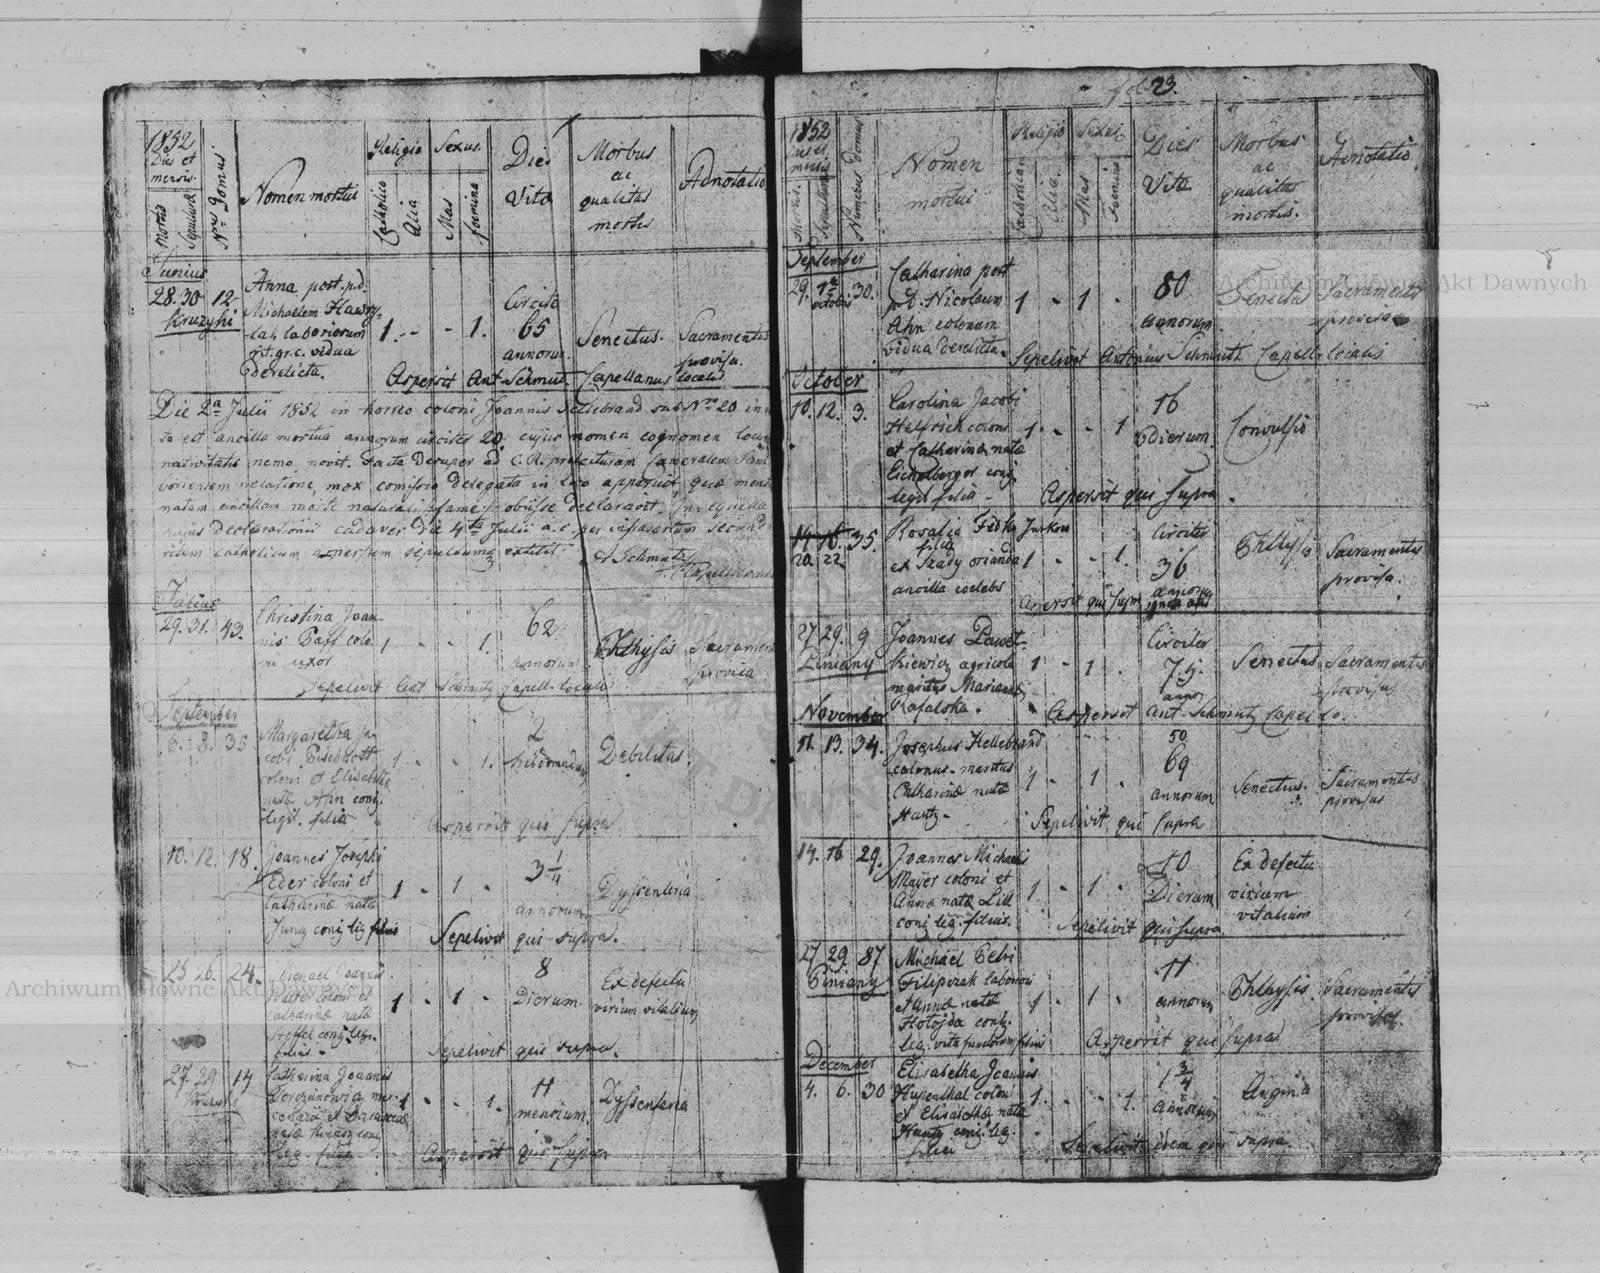 1852
Dies et
mensis.
Mortis
Sepulturæ
Nrus Domus
Nomen mortui
Religio
Catholica
Alia
Sexus.
Mas
femina
Dies
Vitæ
Morbus
ac
qualitas
mortis
Adnotatio
Junius
28. 30. 12.
Kruzyki
Anna post. p.d.
Michaelem Hawry-
lak laboriorum
rit. gr. c. vidua
derelicta.
1. - - 1.
Circiter
65
annorum
Senectus.
Sacramentis
provisa.
Aspersit Ant. Schmutz Capellanus localis
Die 2a Julii 1852 in horreo coloni Joannis Hellebrand sub Nro 20 in
ta est ancilla mortua annorum circiter 20 cujus nomen cognomen locum
nativitatis nemo novit. Facta desuper ad C. R. præfecturam Cameralem Sam
boriensem relatione, mox comissio delegata in loco apparuit, quæ
ancillam morte naturali /:fame:/ obiisse declaravit. In sequela
hujus declarationis cadaver die 4ta Julii a. c. per infrascriptum secundum
ritum catholicum aspersum sepultumq extitit.
A Schmutz
Capellanus
Julius
29. 31. 43.
Christina Joan
nis Paff colo
ni uxor
1 - - 1.
62
annorum
Phthysis
Sacramentis
provisa
Sepelivit Ant Schmutz Capell. localis
September
6. 8. 35
Margaretha Ja
cobi
coloni et Elisabethæ
natæ Ahn conj.
legit. filia
1 - - 1.
2
hebdomadum
Debilitas.
Aspersit qui supra
10. 12. 18.
Joannes Josephi
Eder coloni et
Catharinæ natæ
Jung conj. leg filius
1 - 1 -
3 1/4
annorum
Dyssenteria
Sepelivit qui supra.
25 26. 24.
Michael Joannis
Walter coloni et
Catharinæ natæ
conj. leg.
filius.
1 - 1 -
8
Dierum
Ex defectu
virium vitalium
Sepelivit qui supra.
27. 29 14
Catharina Joannis
mer
cenarii et
natæ conj
leg. filia
1 - - 1.
11
mensium
Dyssenteria
Aspersit qui supra
fol. 23.
1852
Dies et
mensis
Mortis.
Sepulturæ
Numerus domus
Nomen
mortui
Religio
Catholica
Alia.
Sexus.
Mas
Femina
Dies
Vitæ
Morbus
ac
qualitas
mortis.
Adnotatio.
September
29. 1a octobris 30.
Catharina post
p.d. Nicolaum
Ahn colonum
vidua derelicta.
1 - 1 -
80
annorum
Senectus
Sacramentis
provisa
Sepelivit Antonius Schmutz Capell. localis
October
10. 12. 3.
Carolina Jacobi
Helfrich coloni
et Catharinæ natæ
Eichelberger conj
legit filia -
1 - - 1
16
dierum
Convulsio
Aspersit qui supra.
14 16. 35.
20. 22.
Rosalia Fedka Jurkow
filia
ex oriunda
ancilla coelebs
1 - - 1.
Circiter
36
annorum
Phthysis
Sacramentis
provisa.
Aspersit qui supra
27 29. 9
Piniany
Joannes Pawet-
kiewicz agricola
maritus Mariannæ
Rafalska.
1 - 1 -
Circiter
75
annor
Senectus
Sacramentis
provisus
Aspersit Ant. Schmutz Capel lo.
November
11. 13. 34.
Josephus Hellebrand
colonus maritus
Catharinæ natæ
Hautz.
1 - 1 -
50
69
annorum
Senectus.
Sacramentis
provisus
Sepelivit qui supra
14. 16 29.
Joannes Michaelis
Mayer coloni et
Annæ natæ Lill
conj. leg. filius.
1 - 1 -
10
Dierum
Ex defectu
virium
vitalium
Sepelivit qui supra
27 29. 87
Piniany
Michael Petri
Filipczak laboriosi
et Annæ natæ
Hołojda conj.
leg. vitæ functorum filius
1 - 1 -
11
annorum
Phthysis
Sacramentis
provisus.
Aspersit qui supra
December
4. 6. 30
Elisabetha Joannis
Hujenthal coloni
et Elisabethæ natæ
Hautz conj. leg.
filia
1. - - 1.
1 3/4
annorum
Angina
Sepelivit idem qui supra
Archiwum Główne Akt Dawnych
Archiwum Główne Akt Dawnych